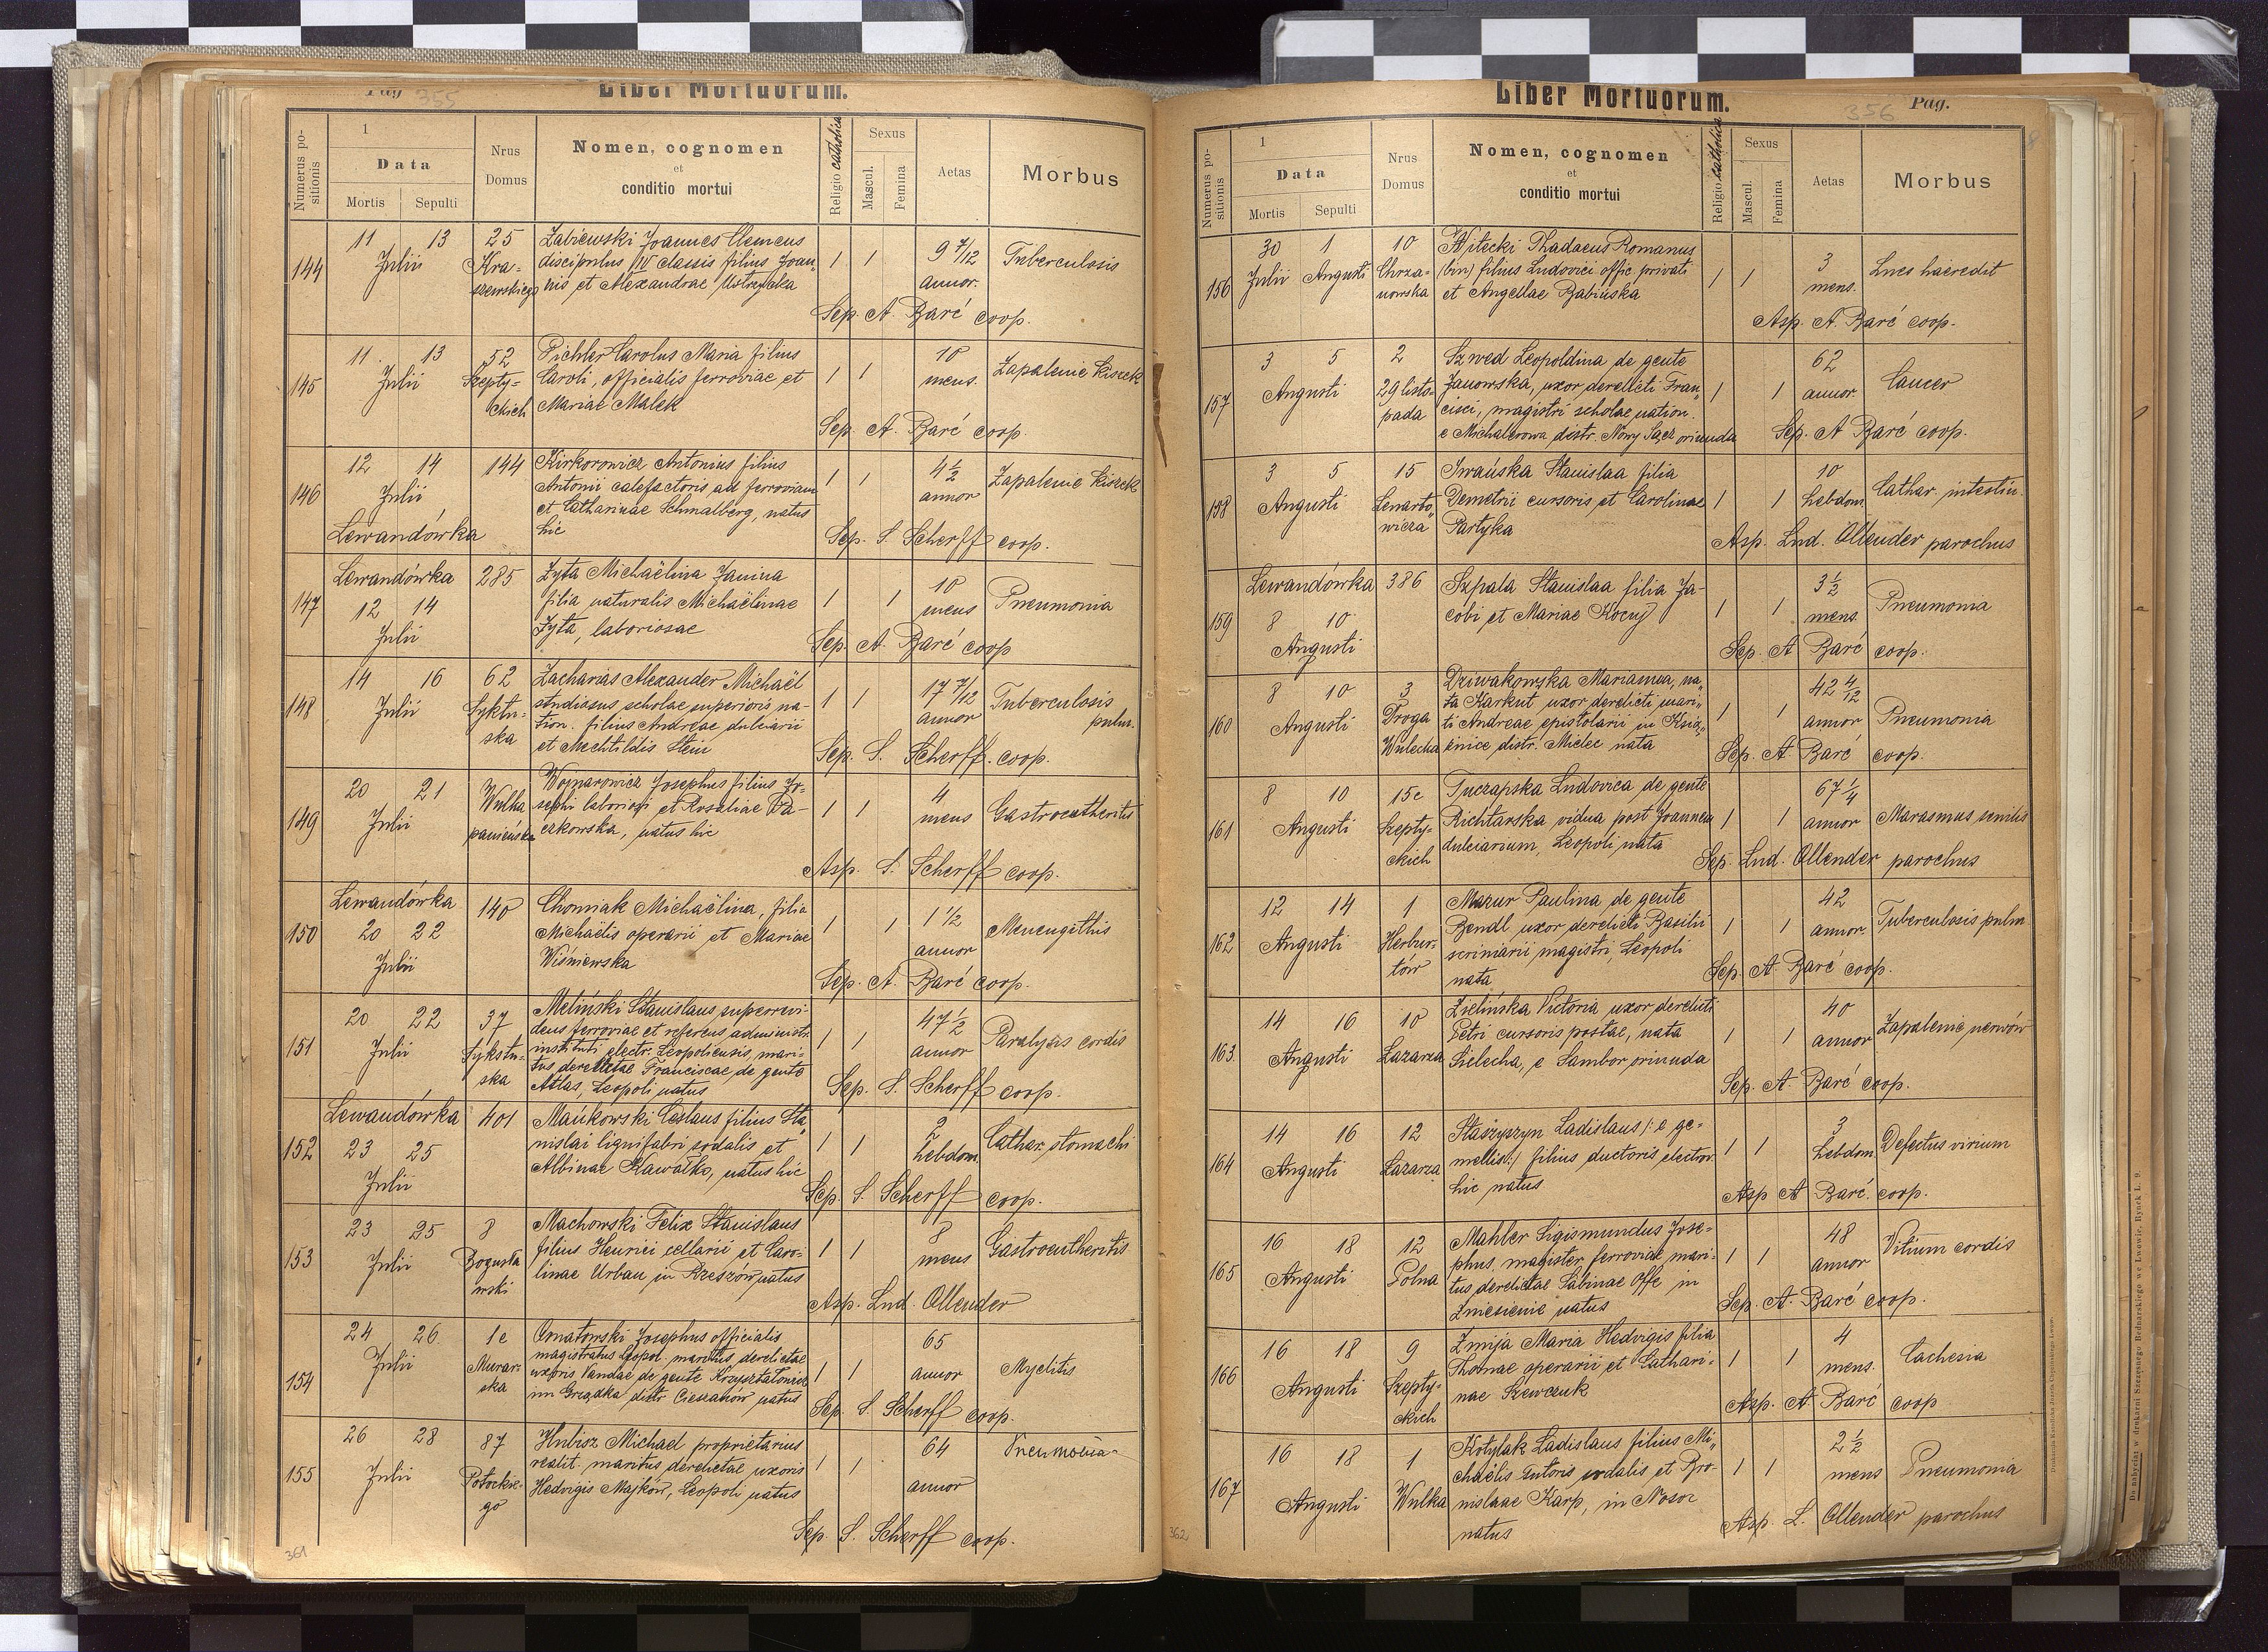 Pag 355
Liber Mortuorum.
Numerus positionis
1
Data
Mortis Sepulti
Nrus Domus
Nomen, cognomen
et
conditio mortui
Religio catholica
Sexus
Mascul. Femina
Aetas
Morbus
144
11 13
Julii
25
Kra-
szewskiego
Żabiewski Joannes Clemens
discipulus IV classis filius Joan-
nis et Alexandrae Ustrzycka
1 1
9 7/12
annor.
Tuberculosis
Sep. A. Barć coop.
145
11. 13
Julii
52
Szepty-
ckich
Pichler Carolus Maria filius
Caroli, officialis ferroviae et
Mariae Malek
1 1
10
mens.
Zapalenie kiszek
Sep. A. Barć coop.
146
12 14
Julii
Lewandówka
144
Kirkorowicz Antonius filius
Antonii calefactoris ad ferroviam
et Catharinae Schmalberg, natus
hic
1 1
4 1/2
annor
Zapalenie kiszek
Sep. S. Scherff coop.
147
Lewandówka
12 14
Julii
285
Zyta Michaëlina Janina
filia naturalis Michaëlinae
Zyta, laboriosae
1 1
10
mens
Pneumonia
Sep. A. Barć coop
148
14 16
Julii
62
Sykstu-
ska
Zacharias Alexander Michaël
studiosus scholae superioris na-
tion. filius Andreae dulciarii
et Mechtildis Stein
1 1
17 7/12
annor
Tuberculosis
pulm.
Sep. S. Scherff. coop.
149
20 21
Julii
Wulka
panieńska
Wojnarowicz Josephus filius Jo-
sephi laboriosi et Rosaliae
cakowska, natus hic
1 1
4
mens
Gastroentheritis
Asp. S. Scherff coop.
150
Lewandówka
20 22
Julii
140
Chomiak Michaëlina, filia
Michaëlis operarii et Mariae
Wiśniewska
1 1
1 1/2
annor
Menengithis
Sep. A. Barć coop.
151
20 22
Julii
37
Sykstu-
ska
Meliński Stanislaus superrevi-
dens ferroviae et referens administr.
instituti electr. Leopoliensis, mari-
tus derelictae Franciscae de gente
Atlas, Leopoli natus
1 1
47 1/2
annor
Paralysis cordis
Sep. S. Scherff coop.
152
Lewandówka
23 25
Julii
401
Mańkowski Ceslaus filius Sta-
nislai lignifabri sodalis et
Albinae Kawałko, natus hic
1 1
2
hebdom.
Cathar. stomachi
Sep. S. Scherff coop.
153
23 25
Julii
8
Bogusła
wski
Machowski Felix Stanislaus
filius Henrici cellarii et Caro-
linae Urban in Rzeszów natus
1 1
8
mens
Gastroentheritis
Asp. Lud. Ollender
154
24 26
Julii
1e
Murar-
ska
Ornatowski Josephus officialis
magistratus Leopol. maritus derelictae
uxoris Vandae de gente
in Grządka distr. Cieszanów natus
1 1
65
annor
Myelitis
Sep. S. Scherff coop.
155
26 28
Julii
87
Potockie-
go
Hubisz Michael proprietarius
realit. maritus derelictae uxoris
Hedvigis Majków, Leopoli natus
1 1
64
annor
Pneumonia
Sep. S. Scherff coop.
361
Liber Mortuorum.
356 Pag.
Numerus positionis
1
Data
Mortis Sepulti
Nrus Domus
Nomen, cognomen
et
conditio mortui
Religio catholica
Sexus
Mascul. Femina
Aetas
Morbus
156
30 1
Julii Augusti
10
Chrza-
nowska
Witecki Thadaeus Romanus
(bin) filius Ludovici offic. privati
et Angellae Babińska
1 1
3
mens.
Lues haeredit
Asp. A. Barć coop.
157
3 5
Augusti
2
29 listo-
pada
Szwed Leopoldina de gente
Janowska, uxor derelicti Fran-
cisci, magistri scholae nation.
e Michalczowa distr. Nowy Sącz oriunda
1 1
62
annor.
Cancer
Sep. A Barć coop.
158
3 5
Augusti
15
Lenarto-
wicza
Iwańska Stanislaa filia
Demetrii cursoris et Carolinae
Partyka
1 1
10
hebdom.
Cathar. intestin.
Asp. Lud. Ollender parochus
159
Lewandówka
8 10
Augusti
386
Szpala Stanislaa filia Ja-
cobi et Mariae Kocuj
1 1
3 1/2
mens.
Pneumonia
Sep. A Barć coop.
160
8 10
Augusti
3
Droga
Wulecka
Dziwakowska Marianna, na-
ta Karkut uxor derelicti mari-
ti Andreae epistolarii in Książ-
enice distr. Mielec nata
1 1
42 4/12
annor
Pneumonia
Sep. A Barć coop.
161
8 10
Augusti
15c
Szepty-
ckich
Tuczapska Ludovica de gente
Richtarska vidua post Joannem
dulciarium, Leopoli nata
1 1
67 1/4
annor
Marasmus senilis
Sep. Lud. Ollender parochus
162
12 14
Augusti
1
Herbur-
tów
Mazur Paulina de gente
Bendl uxor derelicti Basilii
scriniarii magistri, Leopoli
nata
1 1
42
annor.
Tuberculosis pulm
Sep. A. Barć coop.
163.
14 16
Augusti
10
Łazarza
Zielińska Victoria uxor derelicti
Petri cursoris postae, nata
Sielecka, e Sambor oriunda
1 1
40
annor
Zapalenie nerwów
Sep. A Barć coop.
164
14 16
Augusti
12
Łazarza
Staszyszyn Ladislaus /: e ge-
mellis :/ filius ductoris electror.
hic natus
1 1
3
hebdom
Defectus virium
Asp A Barć. coop.
165
16 18
Augusti
12
Polna
Mahler Sigismundus Jose-
phus, magister ferroviae mari-
tus derelictae Sabinae Offe in
Zniesienie natus
1 1
48
annor
Vitium cordis
Sep. A. Barć coop.
166
16 18
Augusti
9
Szepty-
ckich
Zmija Maria Hedvigis filia
Thomae operarii et Cathari-
nae Szewczuk
1 1
4
mens.
Cachexia
Asp. A Barć coop
167
16 18
Augusti
1
Wulka
Kotylak Ladislaus filius Mi-
chaëlis sutoris sodalis et Bro-
nislaae Karp, in Nosor
natus
1 1
2 1/2
mens
Pneumonia
Asp. L. Ollender parochus
362
Do nabycia w drukarni Szczęsnego Bednarskiego we Lwowie, Rynek L. 9.